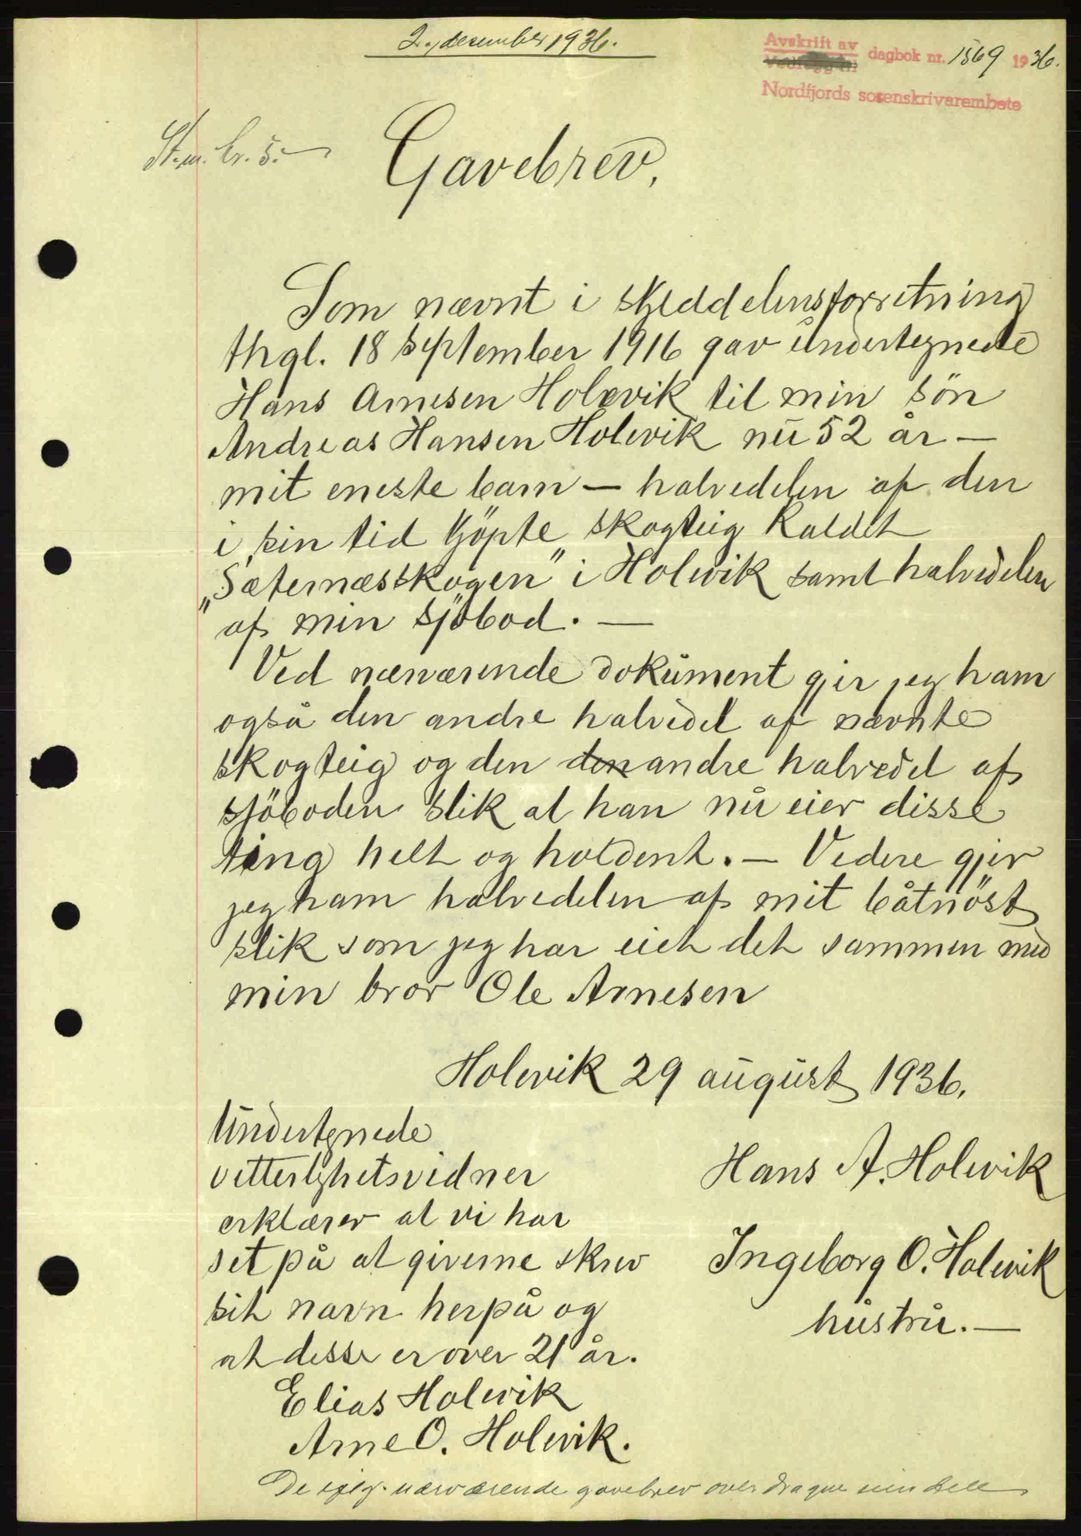 2. desember 1936.
Avskrift av
dagbok nr. 1569 1936.
Nordfjords sorenskrivarembete
St.m. kr. 5.-
Gavebrev.
Som nævnt i skylddelensforretning
thgl. 18 september 1916 gav undertegnede
Hans Arnesen Holevik til min sön
Andreas Hansen Holevik nu 52 år —
mit eneste barn — halvedelen af den
i sin tid kjöpte skogteig kaldet
„Sæternæsskogen” i Holevik samt halvedelen
af min sjöbod. —
Ved nærværende dokument gjir jeg ham
også den andre halvedel af nævnte
skogteig og den den andre halvedel af
sjöboden slik at han nu eier disse
ting helt og holdent. — Videre gjir
jeg ham halvedelen af mit båtnöst
slik som jeg har eiet det sammen med
min bror Ole Arnesen
Holevik 29 august 1936.
Undertegnede
vitterlighetsvidner
erklærer at vi har
set på at giverne skrev
sit navn herpå og
at disse er over 21 år.
Elias Holevik
Arne O. Holevik.
Hans A. Holevik
Ingeborg O. Holevik
hustru. —
De ved nærværende gavebrev overdragne eiendele